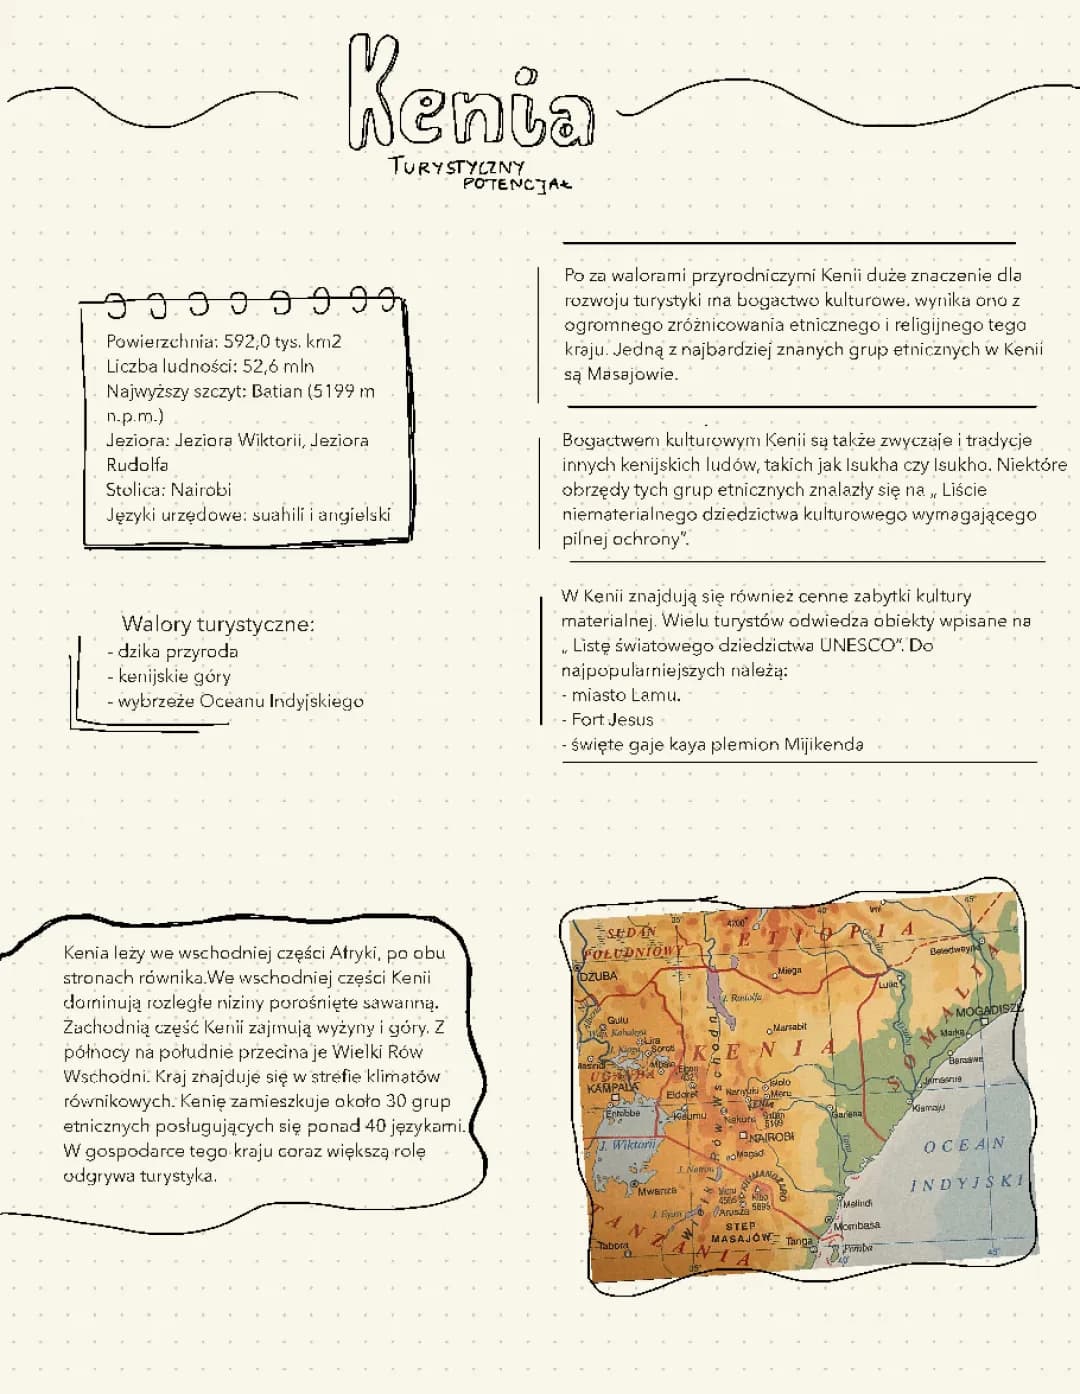 Kenia
TURYSTYCZNY
POTENCJAŁ
Powierzchnia: 592,0 tys. km2
Liczba ludności: 52,6 mln
Najwyższy szczyt: Batian (5199 m
n.p.m.)
Jeziora: Jeziora Wiktorii, Jeziora
Rudolfa
Stolica: Nairobi
Języki urzędowe: suahili i angielski
Walory turystyczne:
- dzika przyroda
- kenijskie góry
- wybrzeże Oceanu Indyjskiego
Po za walorami przyrodniczymi Kenii duże znaczenie dla
rozwoju turystyki ma bogactwo kulturowe. wynika ono z
ogromnego zróżnicowania etnicznego i religijnego tego
kraju. Jedną z najbardziej znanych grup etnicznych w Kenii
są Masajowie.
Bogactwem kulturowym Kenii są także zwyczaje i tradycje
innych kenijskich ludów, takich jak Isukha czy Isukho. Niektóre
obrzędy tych grup etnicznych znalazły się na „ Liście
niematerialnego dziedzictwa kulturowego wymagającego
pilnej ochrony”.
W Kenii znajdują się również cenne zabytki kultury
materialnej. Wielu turystów odwiedza obiekty wpisane na
„ Listę światowego dziedzictwa UNESCO”. Do
najpopularniejszych należą:
- miasto Lamu.
- Fort Jesus
- święte gaje kaya plemion Mijikenda
Kenia leży we wschodniej części Afryki, po obu
stronach równika.We wschodniej części Kenii
dominują rozległe niziny porośnięte sawanną.
Zachodnią część Kenii zajmują wyżyny i góry. Z
północy na południe przecina je Wielki Rów
Wschodni. Kraj znajduje się w strefie klimatów
równikowych. Kenię zamieszkuje około 30 grup
etnicznych posługujących się ponad 40 językami.
W gospodarce tego kraju coraz większą rolę
odgrywa turystyka.
SUDAN
POŁUDNIOWY
ETIOPIA
DŻUBA
Mega
J. Rudolfa
Beledweyne
Marsabit
Gulu
Lira
Soroti
KENIA
SOMALIA
MOGADISZU
Marka
Baraawe
Jamaame
Kismaju
UGANDA
KAMPALA
Entebbe
Eldoret
Kisumu
Nakuru
Nanyuki
Isiolo
Meru
KENIA
5199
Garissa
NAIROBI
Magadi
J. Wiktorii
J. Natron
Mwanza
KILIMANDŻARO
Kibo
5895
Arusza
J. Eyasi
Wielki Rów Wschodni
STEP
MASAJÓW
Tabora
TANZANIA
Tanga
Malindi
Mombasa
Pemba
OCEAN
INDYJSKI